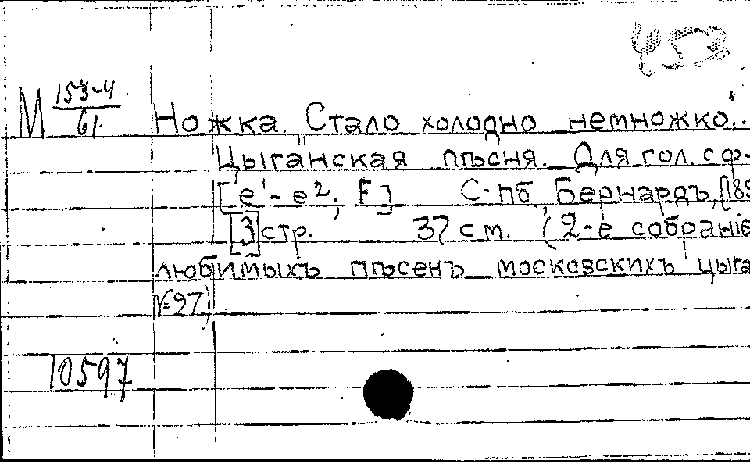 453
М 153-4/61 Ножка. Стало холодно немножко..
Цыганская пѣсня. Для гол. с ф-
[e¹-e², F] С-пб, Бернардъ, [185
[3] стр. 37 см. (2-е собранiе
любимыхъ пѣсенъ московскихъ цыга
№ 97)
10597